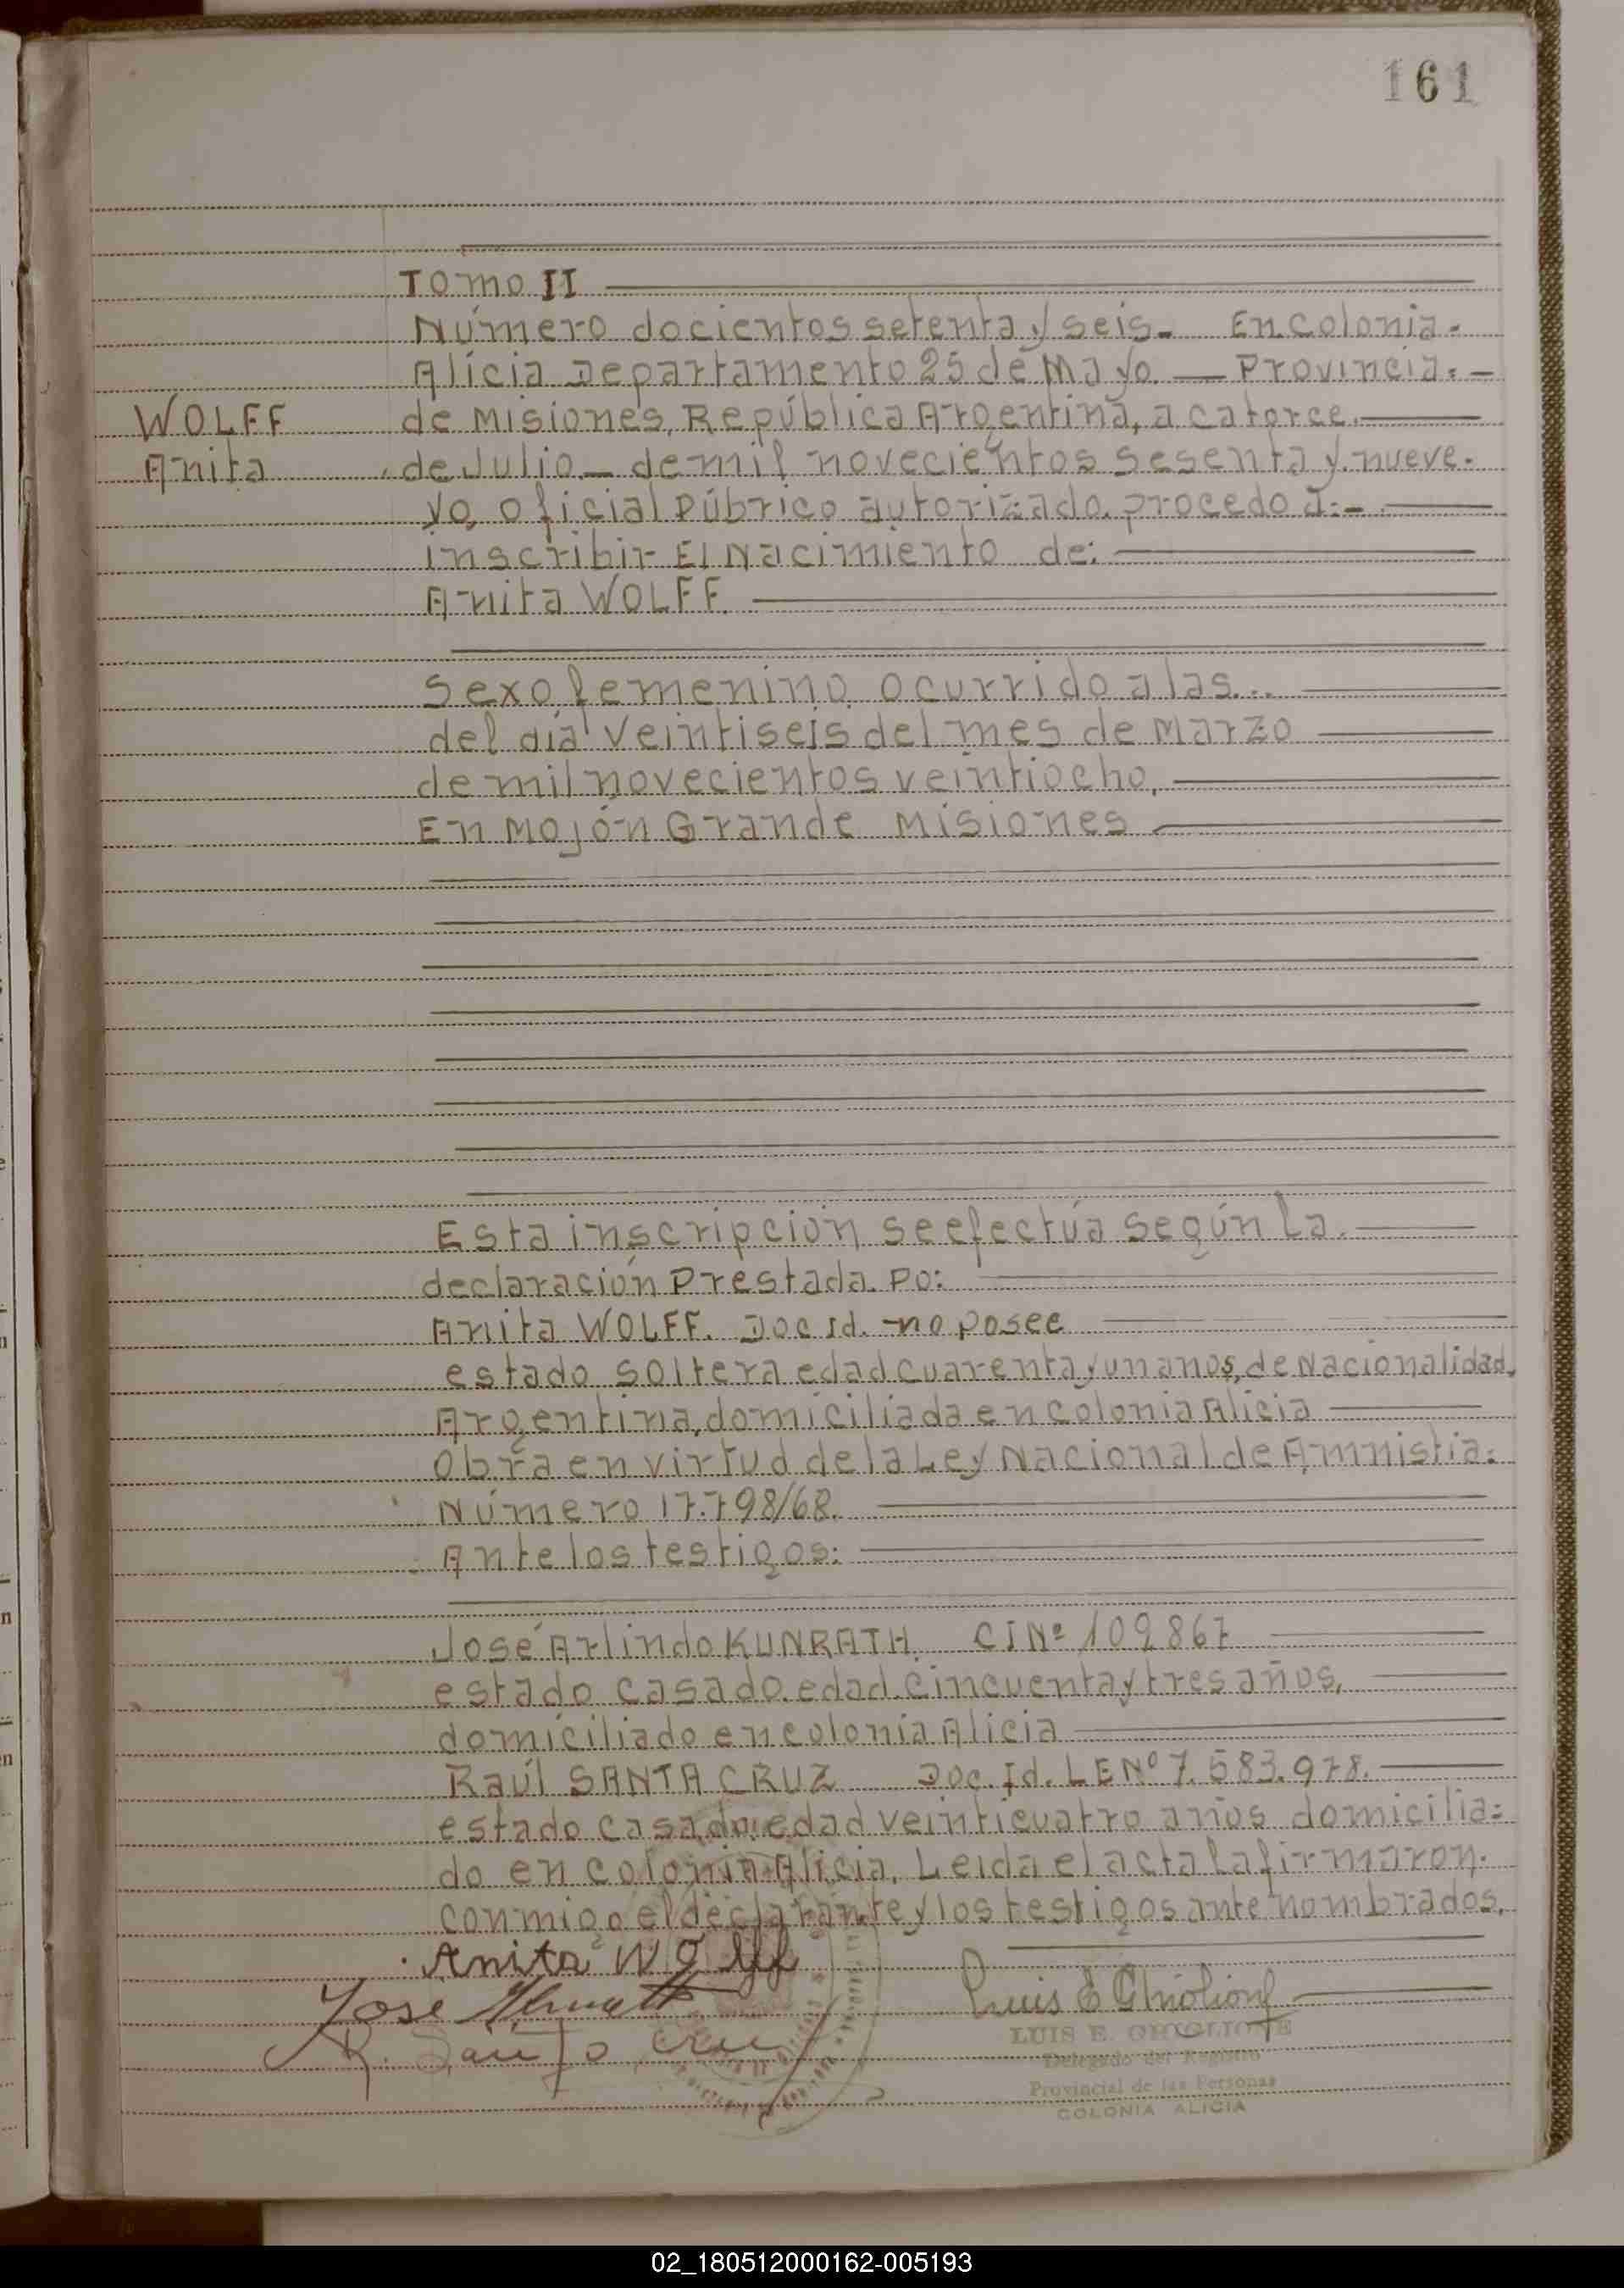 161
Tomo II
Número docientos setenta y seis. En Colonia.
Alicia Departamento 25 de Mayo. — Provincia. —
WOLFF
Anita
de Misiones, República Argentina, a catorce.
de Julio. — de mil novecientos sesenta y nueve.
yo, oficial Púbrico autorizado. procedo a: -
inscribir El Nacimiento de:
Anita WOLFF.
sexo femenino ocurrido a las...
del día veintiseis del mes de Marzo
de mil novecientos veintiocho,
En Mojón Grande Misiones
Esta inscripción se efectúa según La.
declaración Prestada. Po:
Anita WOLFF. Doc Id. - no posee
estado soltera edad cuarenta y un anos, de Nacionalidad.
Argentina, domiciliada en colonia Alicia
Obra en virtud de la Ley Nacional de Amnistia:
Número 17.798/68.
Ante los testigos:
José Arlindo KUNRATH. CI Nº 109867
estado casado. edad. cincuenta y tres años,
domiciliado en colonia Alicia
Raúl SANTA CRUZ Doc. Id. LE Nº 7.583.978.
estado casado edad veinticuatro años domicilia=
do en colonia Alicia, Leida el acta la firmaron.
conmigo el declarante y los testigos ante nombrados.
Anita Wolff
Jose
R. Santa Cruz
Luis E Ghiglione
LUIS E. GHIGLIONE
Delegado del Registro
Provincial de las Personas
COLONIA ALICIA
02_180512000162-005193